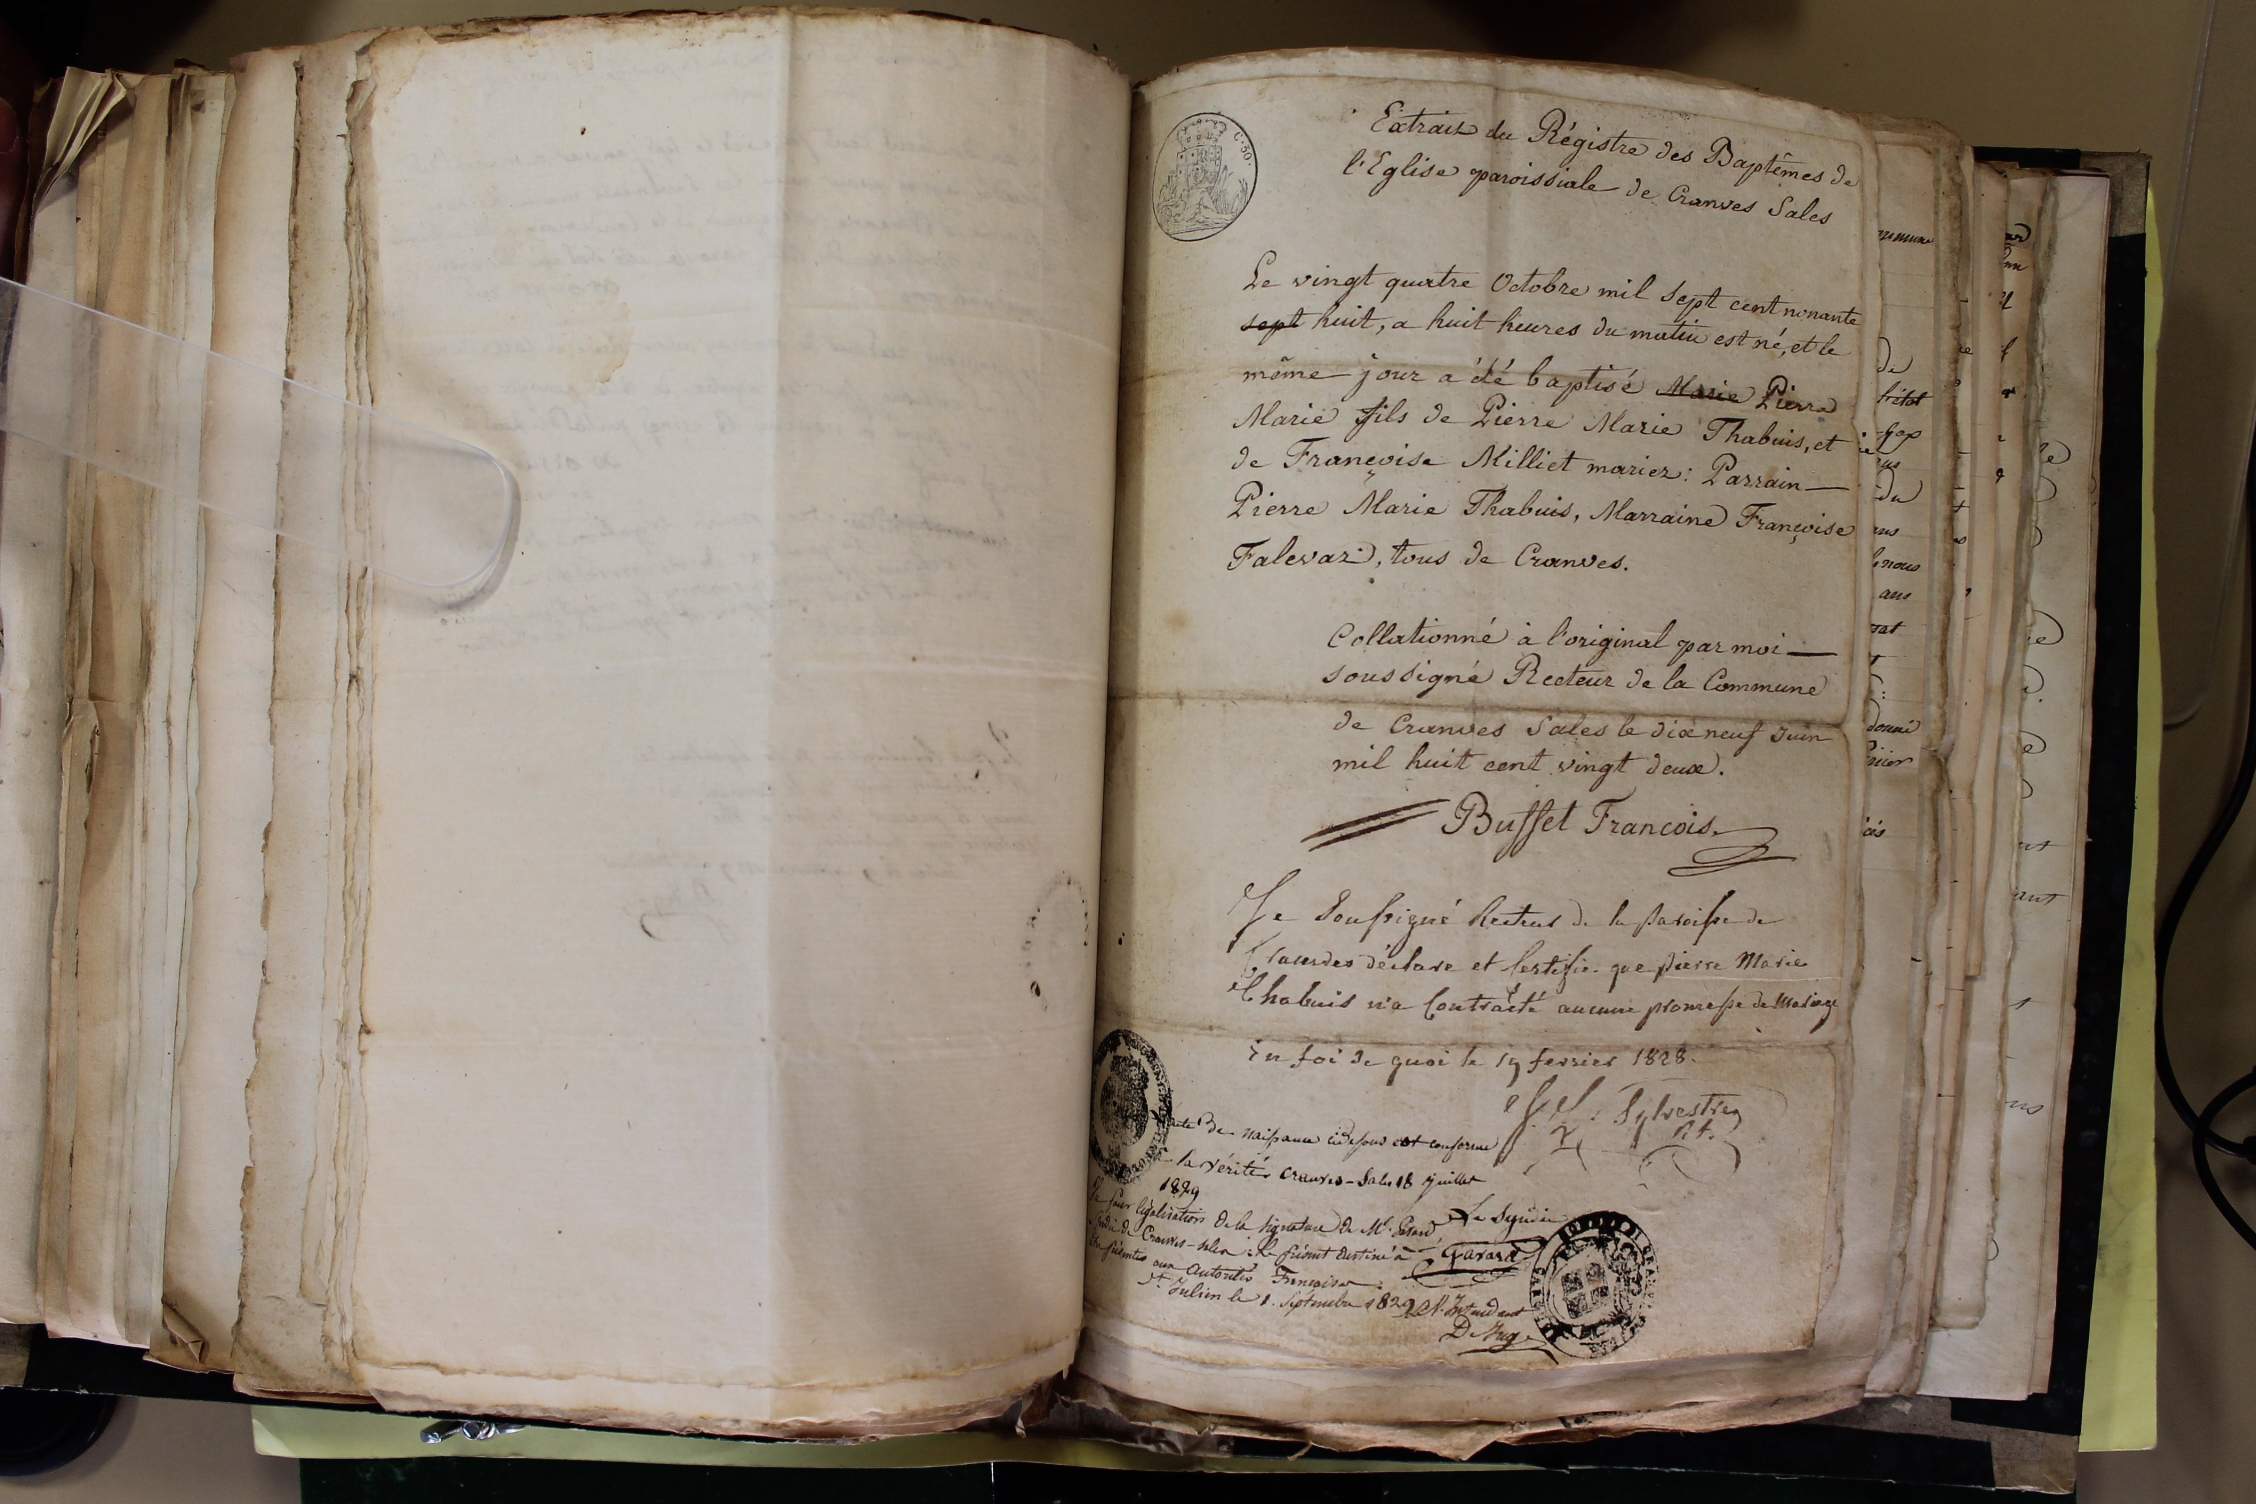 C. 50.
Extrait du Régistre des Baptêmes de
l'Eglise paroissiale de Cranves Sales
Le vingt quatre Octobre mil sept cent nonante
sept huit, a huit heures du matin est né, et le
même jour a été baptisé Marie Pierre
Marie fils de Pierre Marie Thabuis, et
de Françoise Milliet mariez: Parrain
Pierre Marie Thabuis, Marraine Françoise
Falevaz, tous de Cranves.
Collationné à l'original par moi
soussigné Recteur de la Commune
de Cranves Sales le dix neuf Juin
mil huit cent vingt deux.
Buffet Francois
Je Soussigné Recteur de la paroisse de
déclare et Certifie que pierre Marie
Thabuis n'a Contracté aucune promesse de Mariage
En foi de quoi le 19 fevrier 1828.
Sylvestre
Rt.
acte de naissance ci dessus est conforme
la vérité Cranves-Sales 18 juillet
1829
Le Syndic
Gavard
légalisation de la signature de Mr. Gavard
Syndic de Cranves-Sales; le présent destiné à
être présenté aux Autorités Françaises
St. Julien le 1. Septembre 1829
commune
de
du
ans
nous
ans
donné